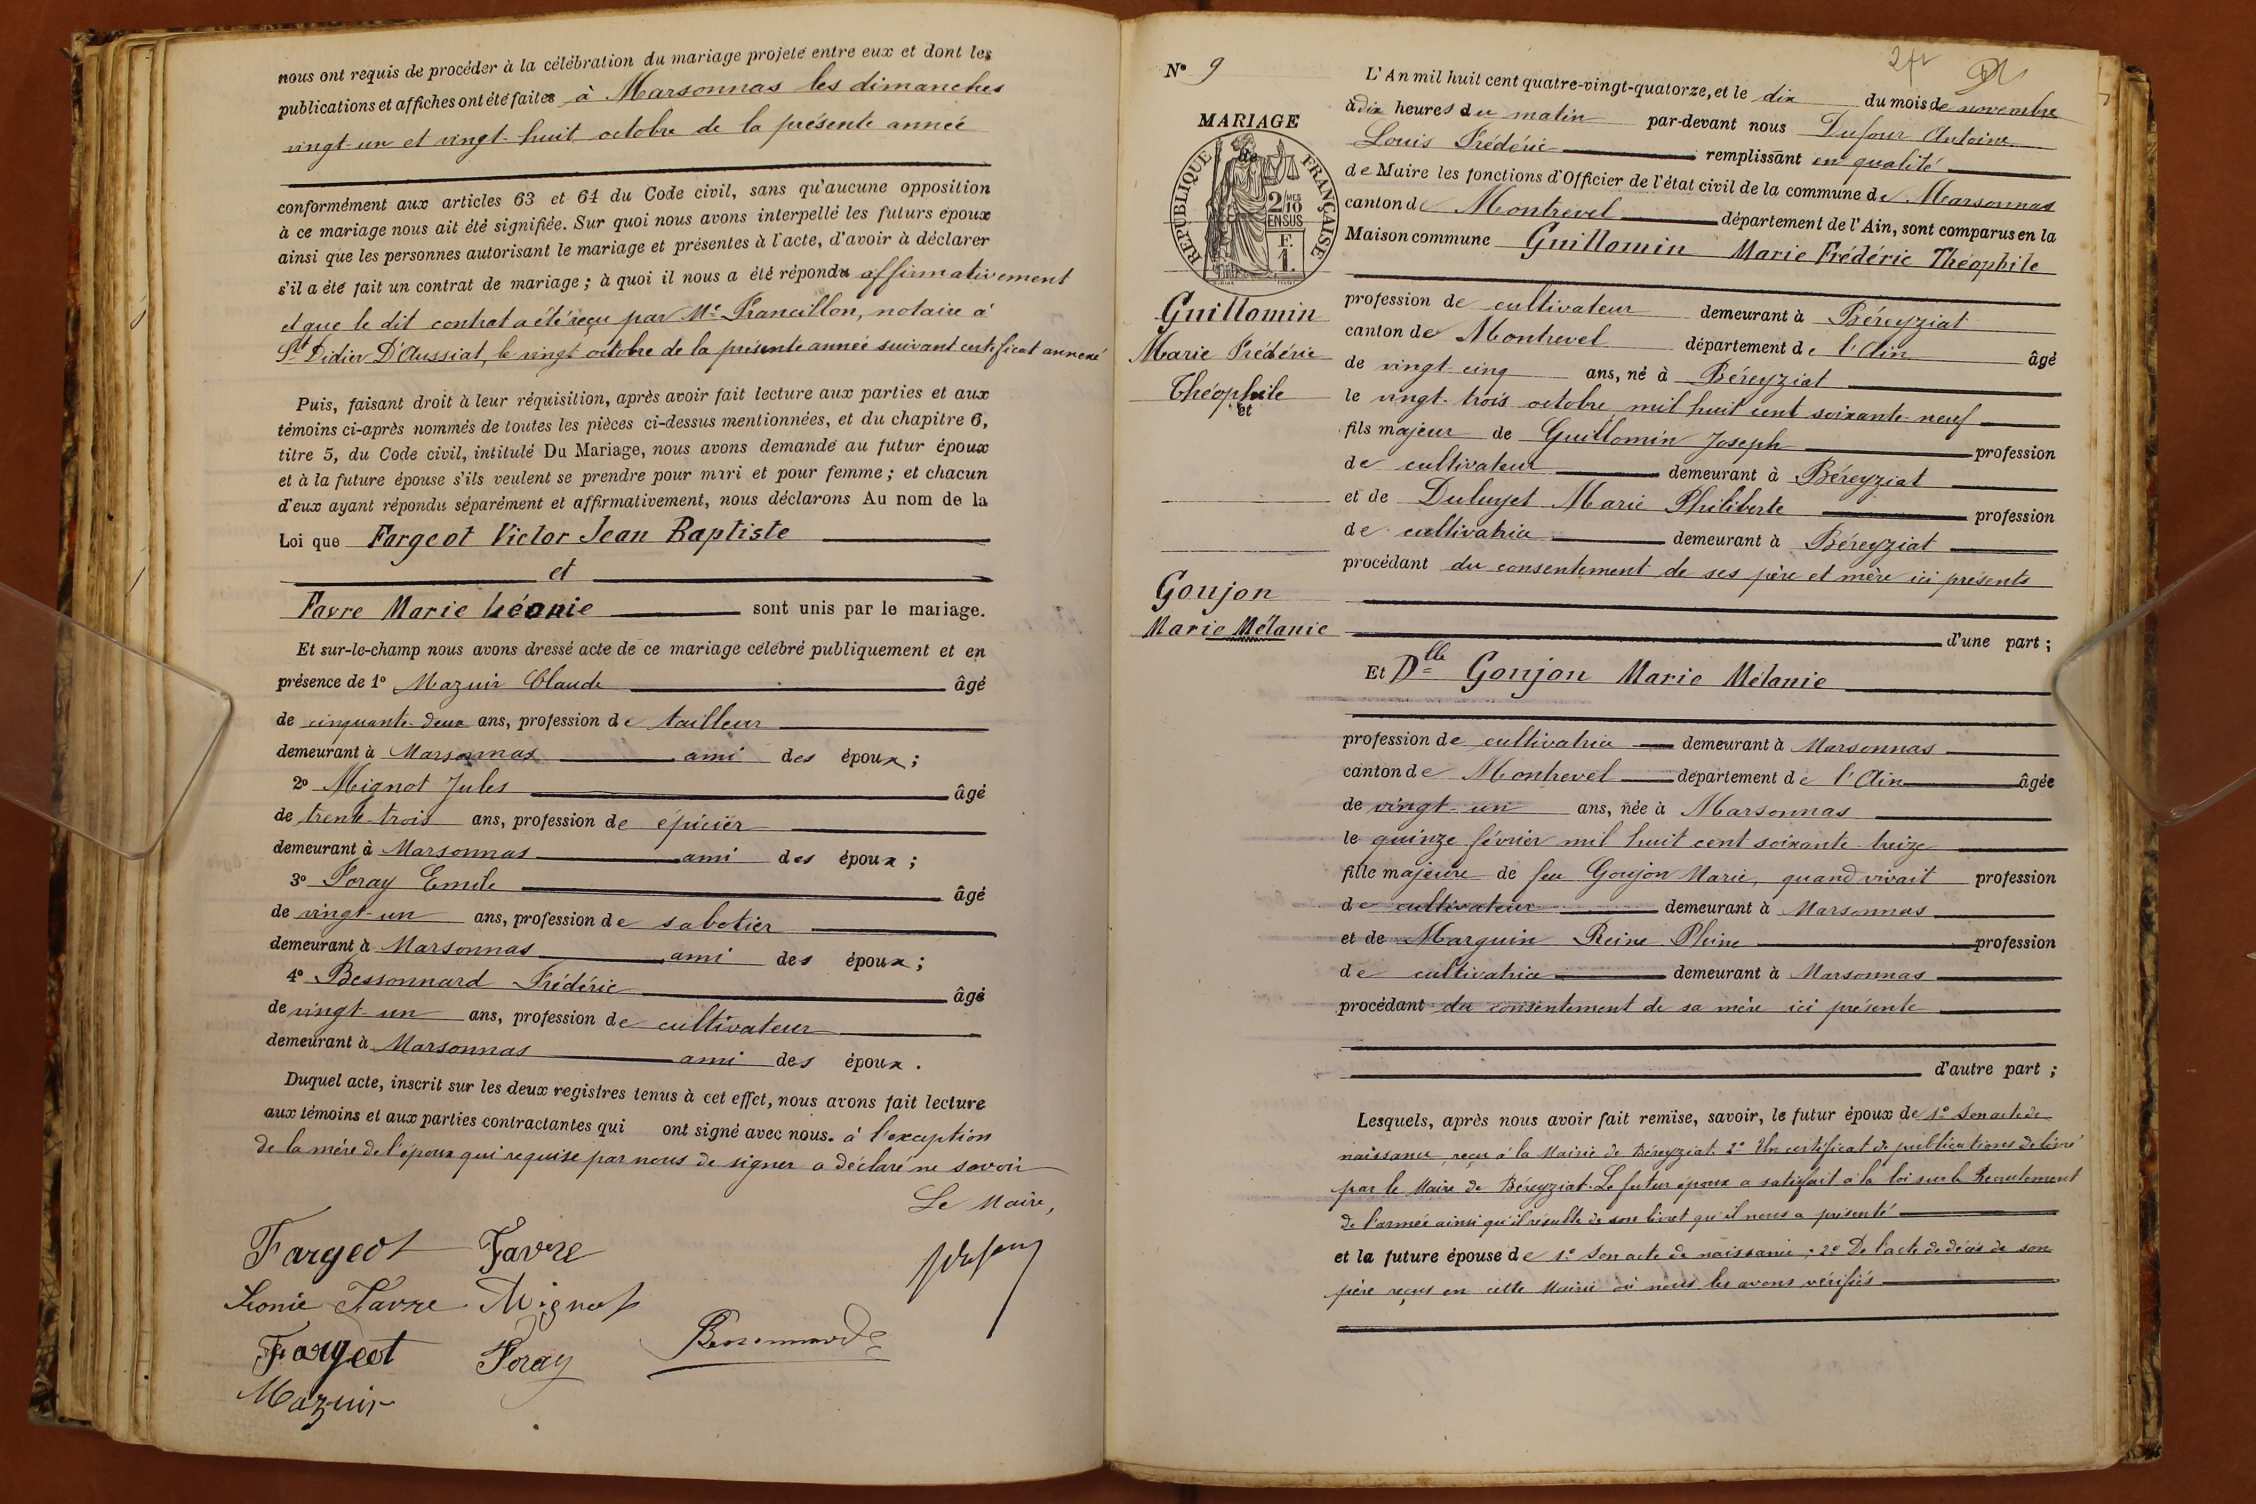 nous ont requis de procéder à la célébration du mariage projeté entre eux et dont les
publications et affiches ont été faites à Marsonnas les dimanches
vingt-un et vingt-huit octobre de la présente année
conformément aux articles 63 et 64 du Code civil, sans qu'aucune opposition
à ce mariage nous ait été signifiée. Sur quoi nous avons interpellé les futurs époux
ainsi que les personnes autorisant le mariage et présentes à l'acte, d'avoir à déclarer
s'il a été fait un contrat de mariage ; à quoi il nous a été répondu affirmativement
et que le dit contrat a été reçu par Me Francillon, notaire à
St Didier D'Aussiat, le vingt octobre de la présente année suivant certificat annexé
Puis, faisant droit à leur réquisition, après avoir fait lecture aux parties et aux
témoins ci-après nommés de toutes les pièces ci-dessus mentionnées, et du chapitre 6,
titre 5, du Code civil, intitulé Du Mariage, nous avons demandé au futur époux
et à la future épouse s'ils veulent se prendre pour mari et pour femme ; et chacun
d'eux ayant répondu séparément et affirmativement, nous déclarons Au nom de la
Loi que Fargeot Victor Jean Baptiste
et
Favre Marie Léonie sont unis par le mariage.
Et sur-le-champ nous avons dressé acte de ce mariage célébré publiquement et en
présence de 1° Mazuir Claude âgé
de cinquante-deux ans, profession de tailleur
demeurant à Marsonnas ami des époux ;
2° Mignot Jules âgé
de trente-trois ans, profession de épicier
demeurant à Marsonnas ami des époux ;
3° Foray Emile âgé
de vingt-un ans, profession de sabotier
demeurant à Marsonnas ami des époux ;
4° Bessonnard Frédéric âgé
de vingt-un ans, profession de cultivateur
demeurant à Marsonnas ami des époux.
Duquel acte, inscrit sur les deux registres tenus à cet effet, nous avons fait lecture
aux témoins et aux parties contractantes qui ont signé avec nous. à l'exception
de la mère de l'époux qui requise par nous de signer a déclaré ne savoir
Le Maire,
Fargeot Favre
Léonie Favre Mignot
Fargeot Foray Bessonnard
Mazuir
N° 9
MARIAGE
de
RÉPUBLIQUE FRANÇAISE
2/10 MES
EN SUS
F.
1.
Guillomin
Marie Frédéric
Théophile
et
Goujon
Marie Mélanie
L'An mil huit cent quatre-vingt-quatorze, et le dix du mois de novembre
à dix heures du matin par-devant nous Dufour Antoine
Louis Frédéric remplissant en qualité
de Maire les fonctions d'Officier de l'état civil de la commune de Marsonnas
canton de Montrevel département de l'Ain, sont comparus en la
Maison commune Guillomin Marie Frédéric Théophile
profession de cultivateur demeurant à Béreyziat
canton de Montrevel département de l'Ain âgé
de vingt-cinq ans, né à Béreyziat
le vingt-trois octobre mil huit cent soixante-neuf
fils majeur de Guillomin Joseph profession
de cultivateur demeurant à Béreyziat
et de Marie Philiberte profession
de cultivatrice demeurant à Béreyziat
procédant du consentement de ses père et mère ici présents
d'une part ;
Et Dlle Goujon Marie Mélanie
profession de cultivatrice demeurant à Marsonnas
canton de Montrevel département de l'Ain âgée
de vingt-un ans, née à Marsonnas
le quinze février mil huit cent soixante-treize
fille majeure de feu Goujon Marie, quand vivait profession
de cultivateur demeurant à Marsonnas
et de Marguin Reine profession
de cultivatrice demeurant à Marsonnas
procédant du consentement de sa mère ici présente
d'autre part ;
Lesquels, après nous avoir fait remise, savoir, le futur époux de 1° Son acte de
naissance, reçu à la Mairie de Béreyziat. 2° Un certificat de publications délivré
par le Maire de Béreyziat. Le futur époux a satisfait à la loi sur le Recrutement
de l'armée ainsi qu'il résulte de son livret qu'il nous a présenté
et la future épouse de 1° Son acte de naissance ; 2° De l'acte de décès de son
père reçus en cette Mairie où nous les avons vérifiés